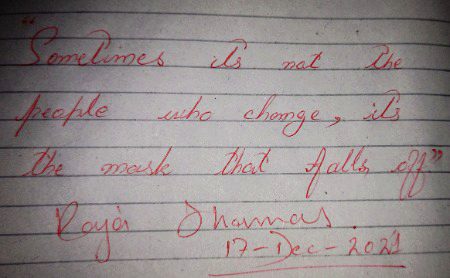 "Sometimes its not the
people who change, its
the mask that falls off"
Raja
17-Dec-2021